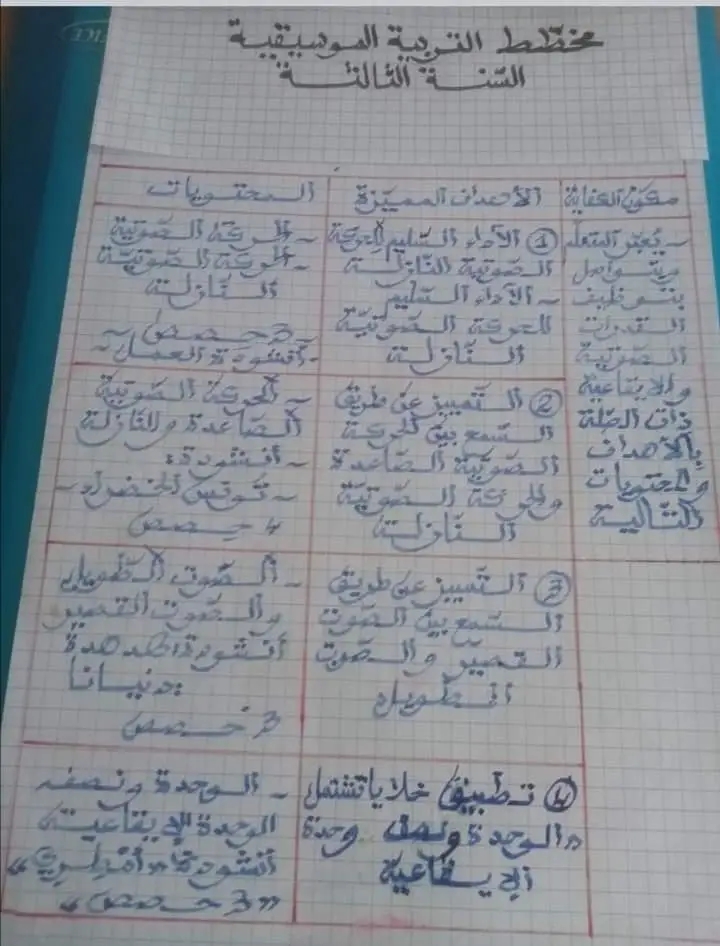 مخطّط التربية الموسيقية
السّنة الثالثة
مكوّن الكفاية
الأهداف المميّزة
المحتويات
- يُعبّر المتعلّم
ويتواصل
بتوظيف
القدرات
الصّوتية
والايقاعية
ذات الصّلة
بالأهداف
والمحتويات
التّالية
① الأداء السّليم للحركة
الصّوتية النّازلة
- الأداء السّليم
للحركة الصّوتيّة
النّازلة
- الحركة الصّوتية
- الحركة الصّوتيّة
النّازلة
3 حصص
- أنشودة العمل -
② التّمييز عن طريق
السّمع بين الحركة
الصّوتيّة الصّاعدة
والحركة الصّوتيّة
النّازلة
- الحركة الصّوتية
الصّاعدة والنّازلة
- أنشودة:
- تونس الخضراء -
4 حصص
③ التّمييز عن طريق
السّمع بين الصّوت
القصير والصّوت
الطّويل
- الصّوت الطّويل
والصّوت القصير
أنشودة:
دنيانا
3 حصص
④ تطبيق خلايا تشتمل
الوحدة ونصف وحدة
الإيقاعية
- الوحدة ونصف
الوحدة الإيقاعية
أنشودة
"3 حصص"